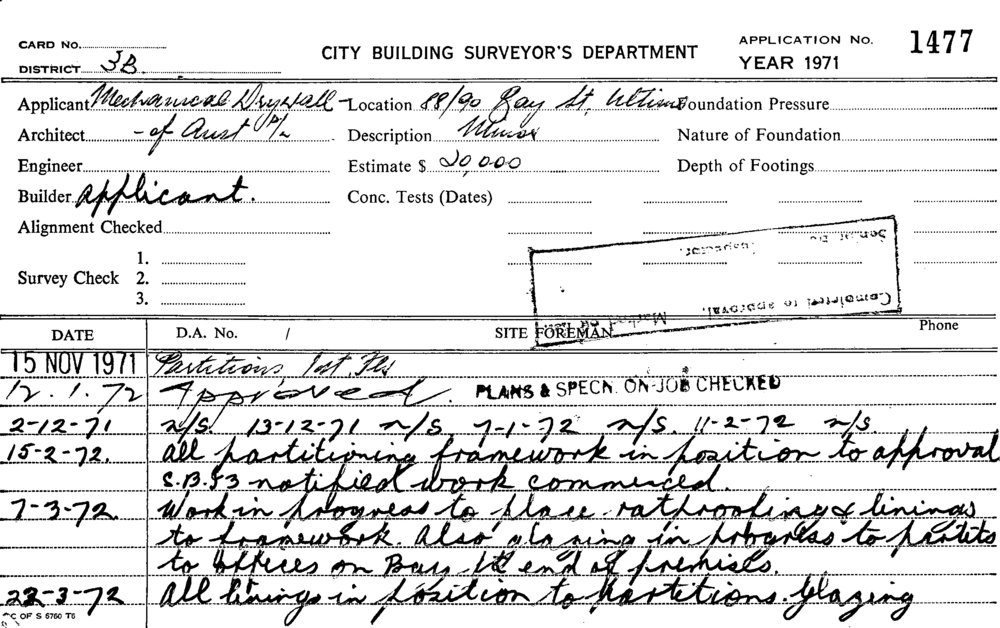 CARD No.
DISTRICT 3B.
CITY BUILDING SURVEYOR'S DEPARTMENT
APPLICATION No. 1477
YEAR 1971
Applicant Mechanical Drywall - Location 88/90 Bay St, Ultimo Foundation Pressure
Architect - of Aust P/L Description Minor Nature of Foundation
Engineer Estimate $ 20,000 Depth of Footings
Builder applicant. Conc. Tests (Dates)
Alignment Checked
Survey Check 1.
2.
3.
Senior Bg. Inspector.
Completed to approval.
DATE D.A. No. / SITE FOREMAN Phone
15 NOV 1971 Partitions, 1st Flr
12.1.72 Approved. PLANS & SPECN. ON JOB CHECKED
2-12-71 N/S. 13-12-71 N/S 7-1-72 N/S. 11-2-72 N/S
15-2-72. All partitioning framework in position to approval
S.B.53 notified work commenced.
7-3-72. Work in progress to place ratproofing & linings
to framework. Also glazing in progress to partits
to offices on Bay St end of premises.
22-3-72 All linings in position to partitions. Glazing
C OF S 6760 T6